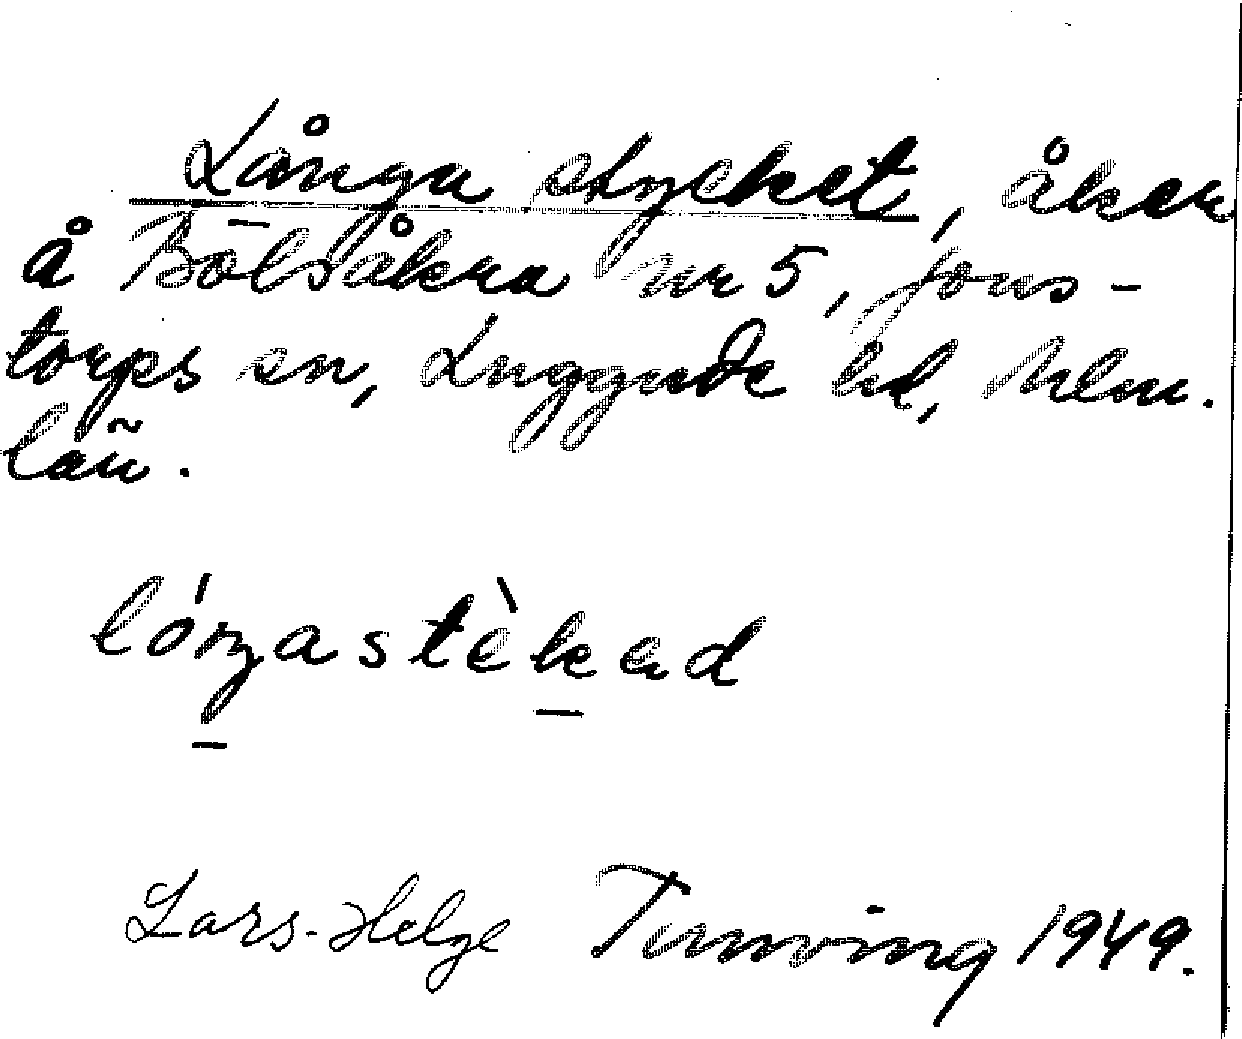 Långa stycket, åker
å Bölsåkra nr 5, Jons-
torps sn, Luggude hd, Mlm.
län.
lóŋastèkəd
Lars-Helge Tunving 1949.